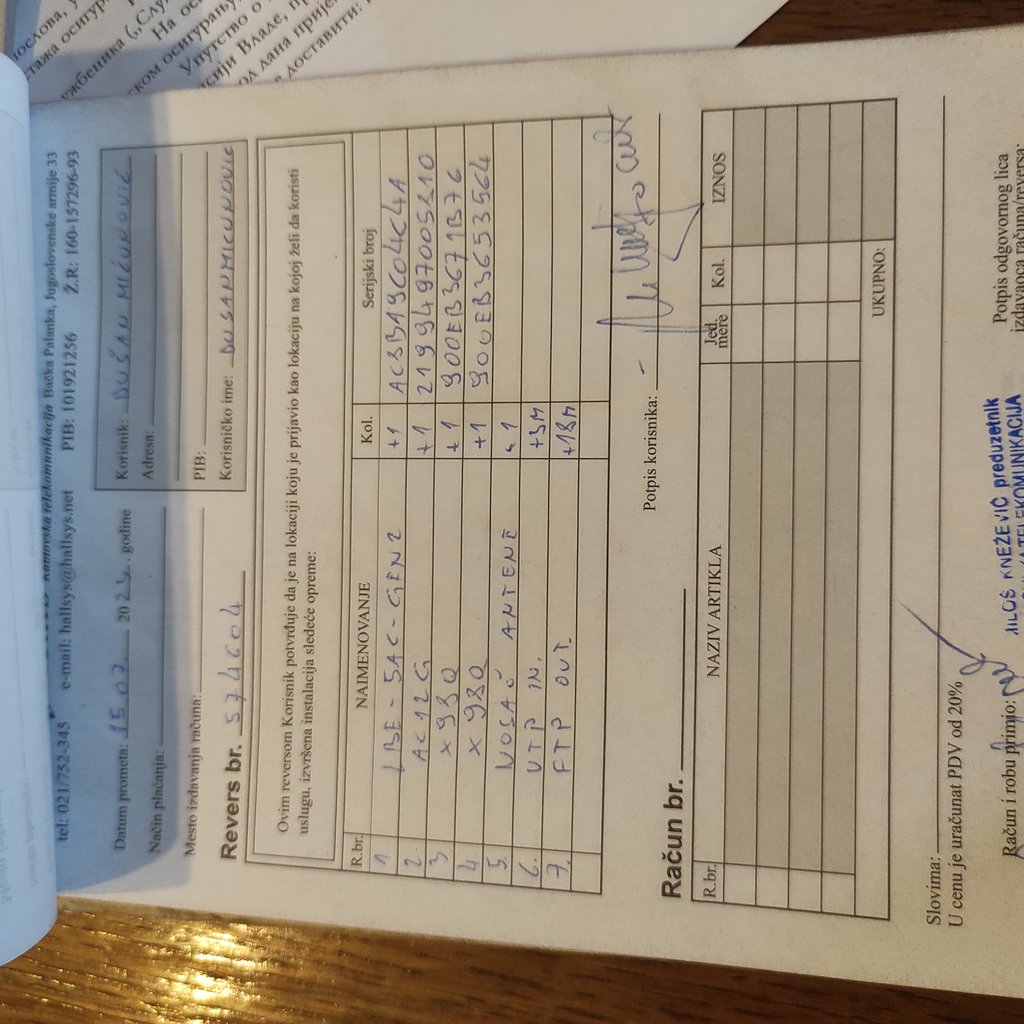 kablovska telekomunikacija Bačka Palanka, Jugoslovenske armije 33
tel: 021/752-345 e-mail: hallsys@hallsys.net PIB: 101921256 Ž.R: 160-157296-93
Datum prometa: 15.07. 2023. godine
Način plaćanja:
Mesto izdavanja računa:
Korisnik: DUŠAN MIĆUNOVIĆ
Adresa:
PIB:
Korisničko ime: DUSANMICUNOVIC
Revers br. 574604
Ovim reversom Korisnik potvrđuje da je na lokaciji koju je prijavio kao lokaciju na kojoj želi da koristi
uslugu, izvršena instalacija sledeće opreme:
R.br. NAIMENOVANJE Kol. Serijski broj
1 LBE-5AC-GEN2 +1 AC8BA9C04C4A
2. AC12G +1 2199497005210
3 X980 +1 900EB3671B76
4 X980 +1 900EB3653564
5. NOSAČ ANTENE 1
6. UTP IN. +3M
7. FTP OUT. +18M
Potpis korisnika:
Račun br.
R.br. NAZIV ARTIKLA Jed. mere Kol. IZNOS
UKUPNO:
Slovima:
U cenu je uračunat PDV od 20%
Račun i robu primio:
Potpis odgovornog lica
izdavaoca računa/reversa:
MILOŠ KNEŽEVIĆ preduzetnik
TELEKOMUNIKACIJA